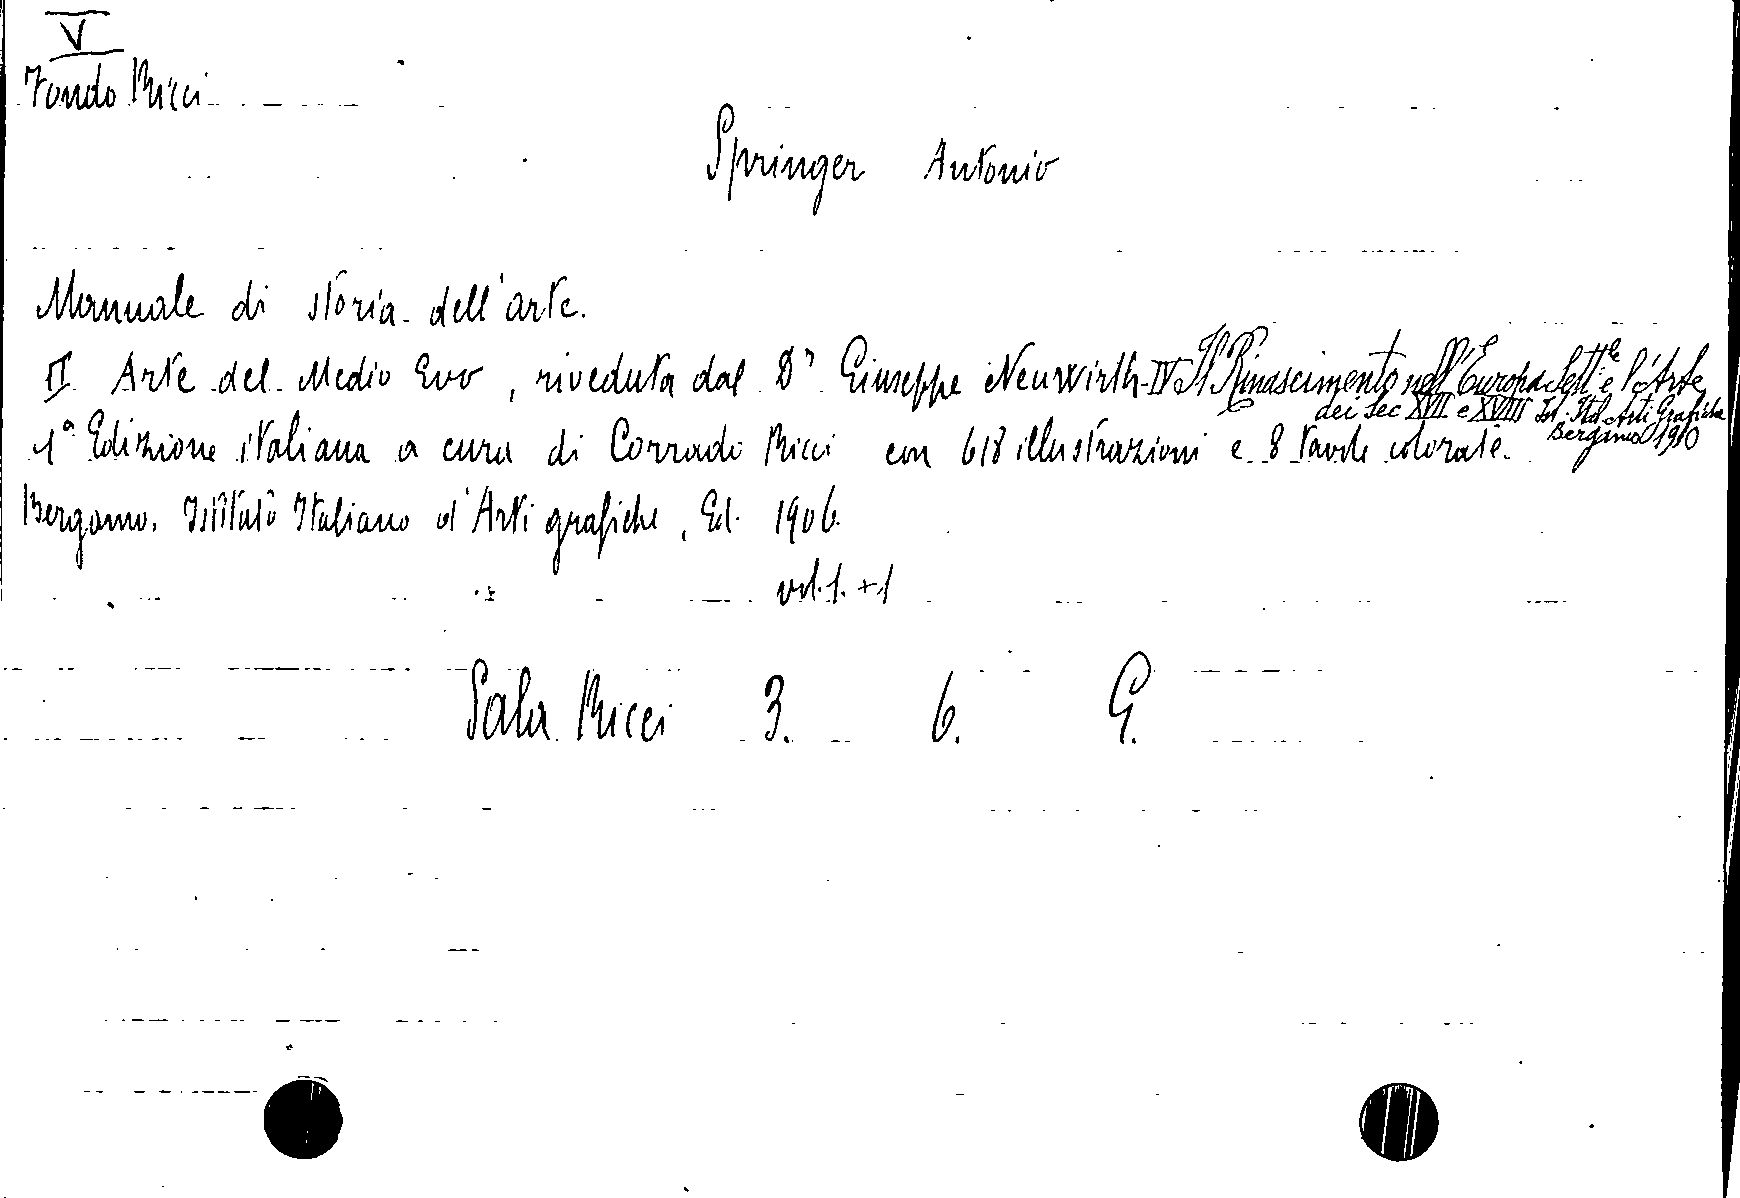 V
Fondo Ricci
Springer Antonio
Manuale di storia dell'arte.
II Arte del Medio Evo, riveduta dal Dr Giuseppe Neuwirth - IV Il Rinascimento nell'Europa Sett.le e l'Arte
dei sec XVII e XVIII Ist. Ital. Arti Grafiche
Bergamo 1910
1ª Edizione italiana a cura di Corrado Ricci con 618 illustrazioni e 8 tavole colorate.
Bergamo. Istituto Italiano d'Arti grafiche, Ed. 1906.
vol. 1. + 1
Sala Ricci 3. 6. G.